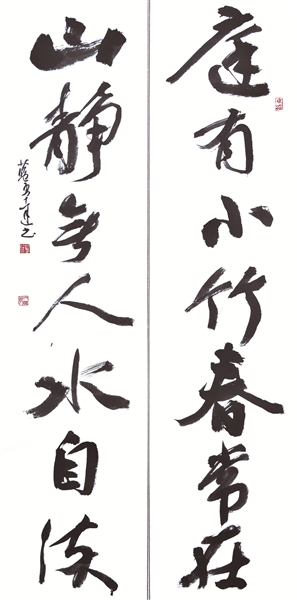 庭有小竹春常在
山静無人水自流